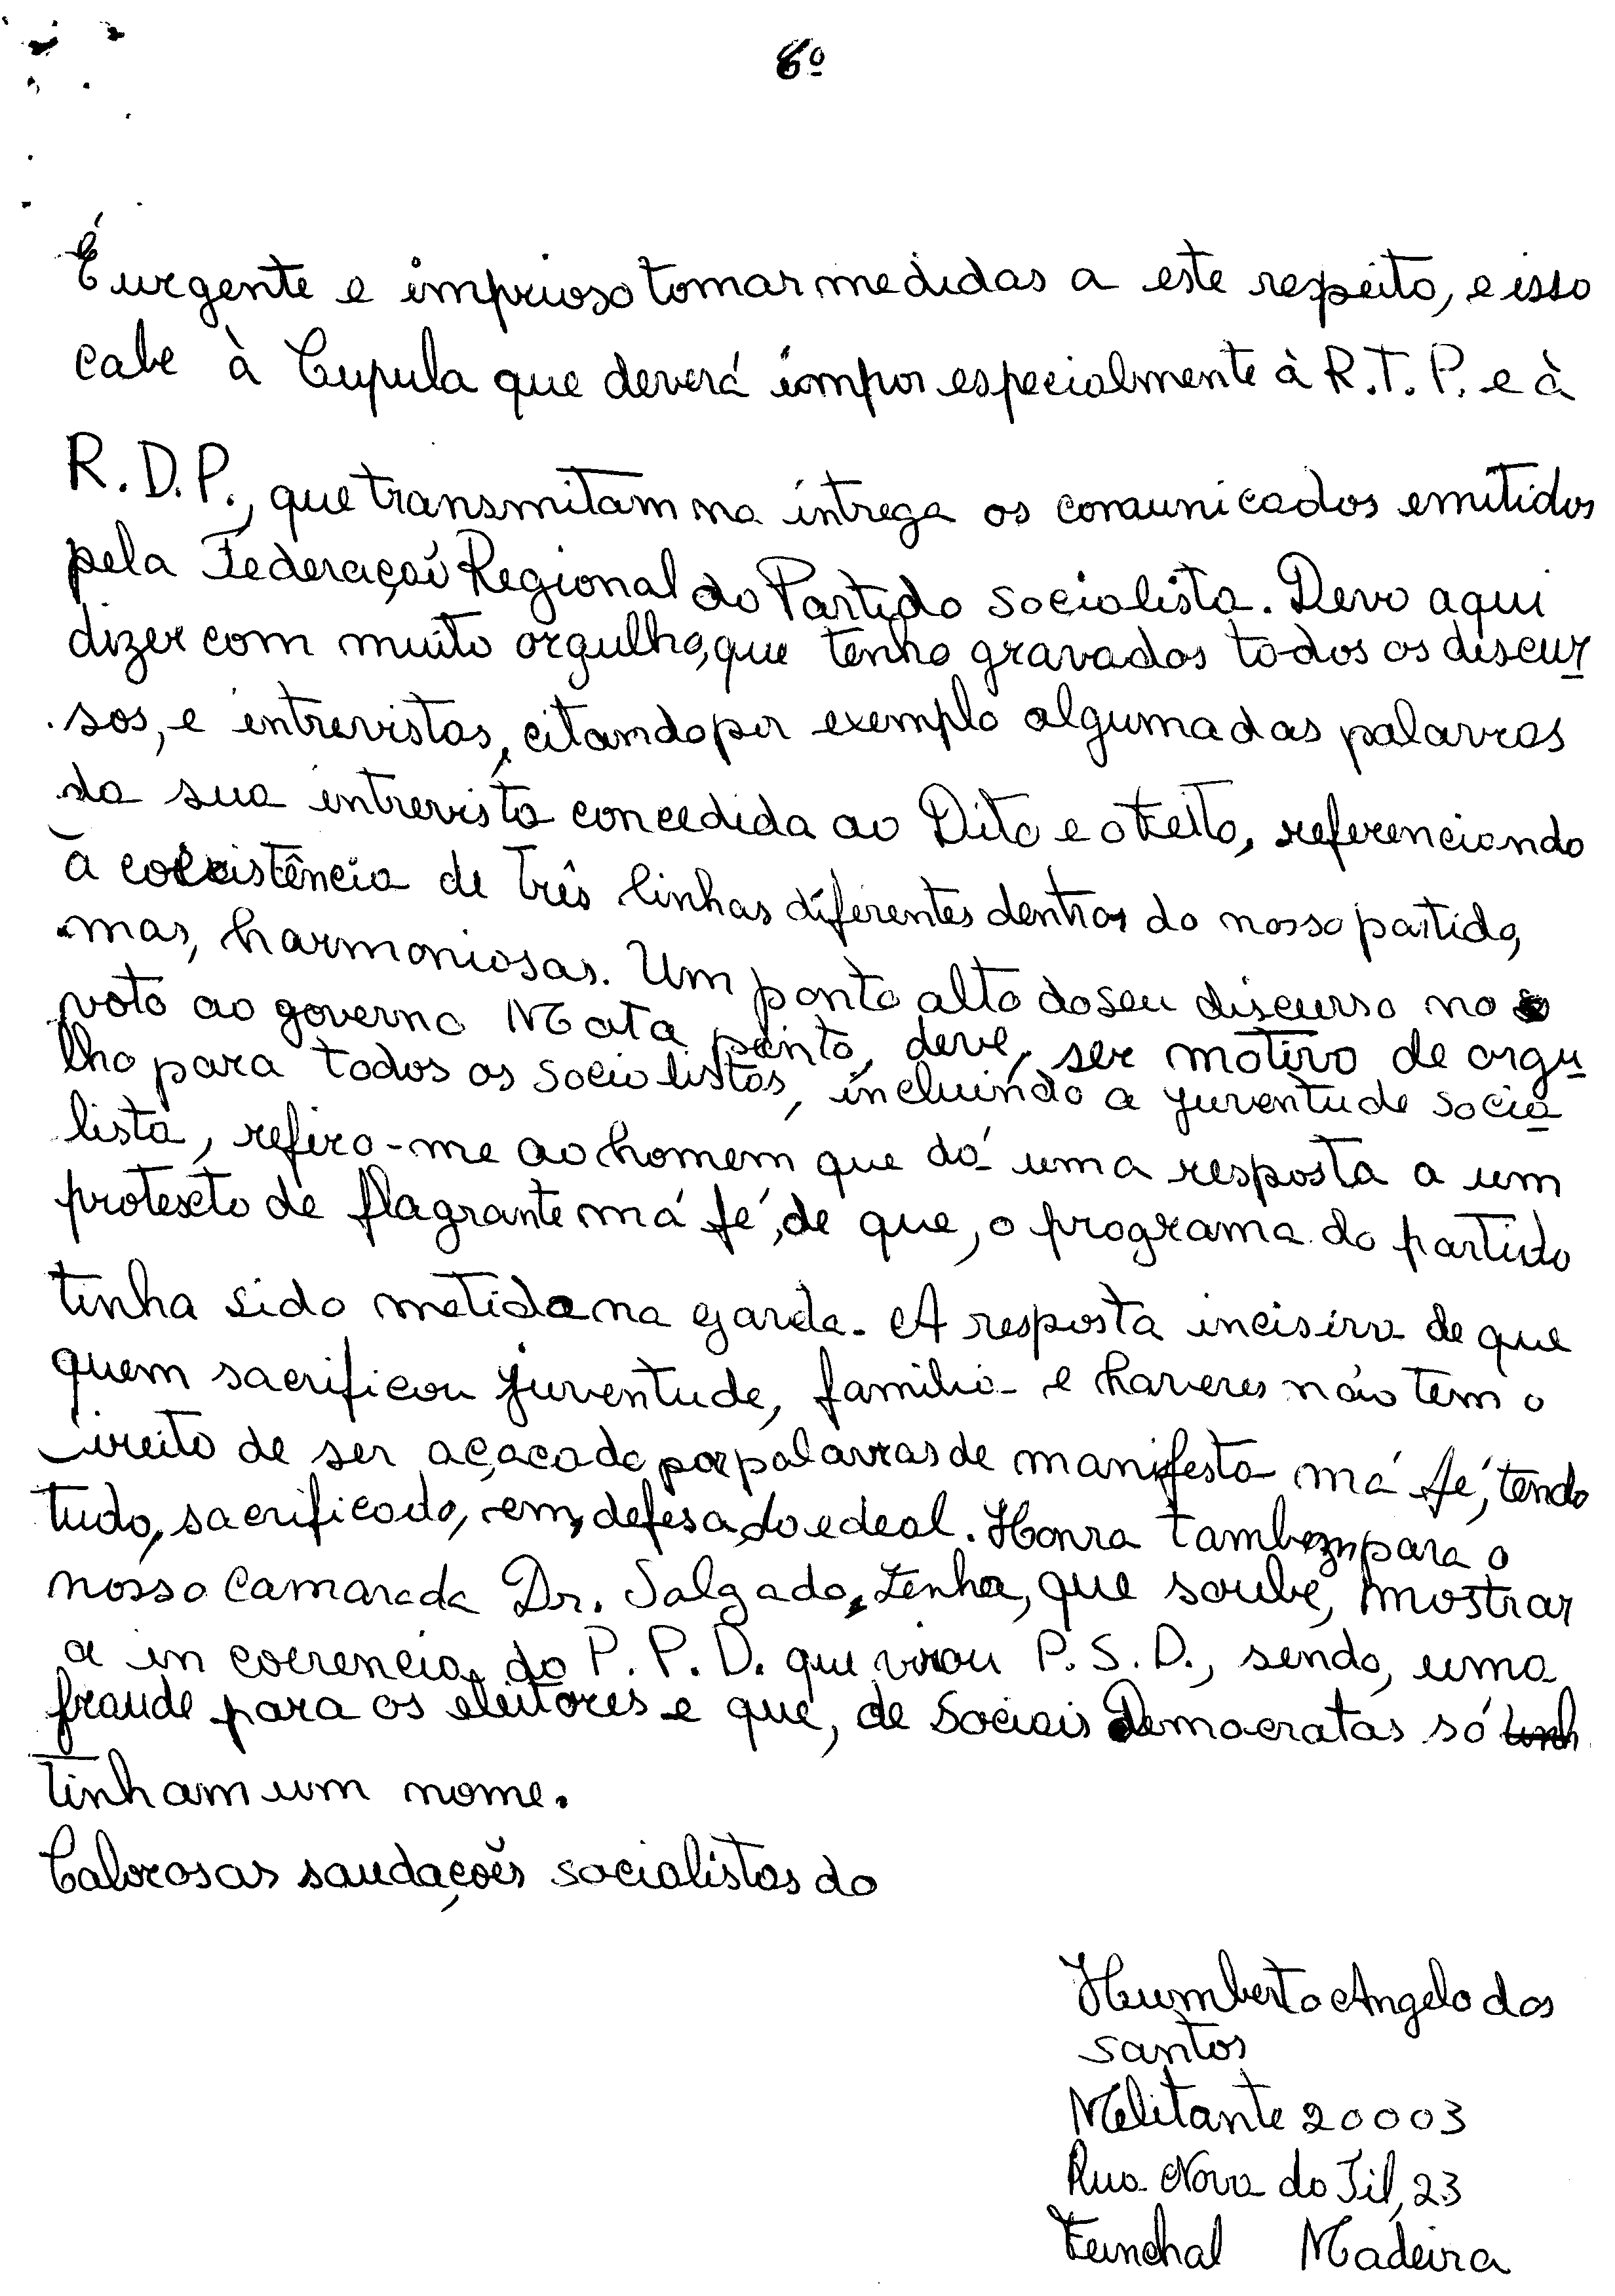 6º
É urgente e imprioso tomar medidas a este respeito, e isso
cabe à Cupula que deverá impor especialmente à R.T.P. e à
R.D.P., que transmitam na íntrega os comunicados emitidos
pela Federaçaõ Regional do Partido Socialista. Devo aqui
dizer com muito orgulho, que tenho gravados todos os discur
sos, e entrevistas, citando por exemplo alguma das palavras
da sua intrevista concedida ao Dito e o Feito, referenciando
a coexistência de três linhas diferentes dentros do nosso partido,
mas, harmoniosas. Um ponto alto do seu discurso no
voto ao governo Mota pinto, deve, ser motivo de orgu
lho para todos os socialistas, incluindo a juventude socia
lista, refiro-me ao homem que dá uma resposta a um
protexto de flagrante má fé, de que, o programa do partido
tinha sido metido na gaveta. A resposta incisiva de que
quem sacrificou juventude, familia e haveres não tem o
direito de ser açacado por palavras de manifesta má fé, tendo
tudo, sacrificado, em, defesa, do edeal. Honra tambem para o
nosso Camarada Dr. Salgado, Zenha, que soube, mostrar
a in coerencia, do P.P.D. que virou P.S.D., sendo, uma
fraude para os eleitores e que, de Sociais Democratas só tinh
tinham um nome.
Calorosas saudaçoẽs socialistas do
Humberto Angelo dos
Santos
Melitante 20003
Rua Nova do Til, 23
Funchal Madeira